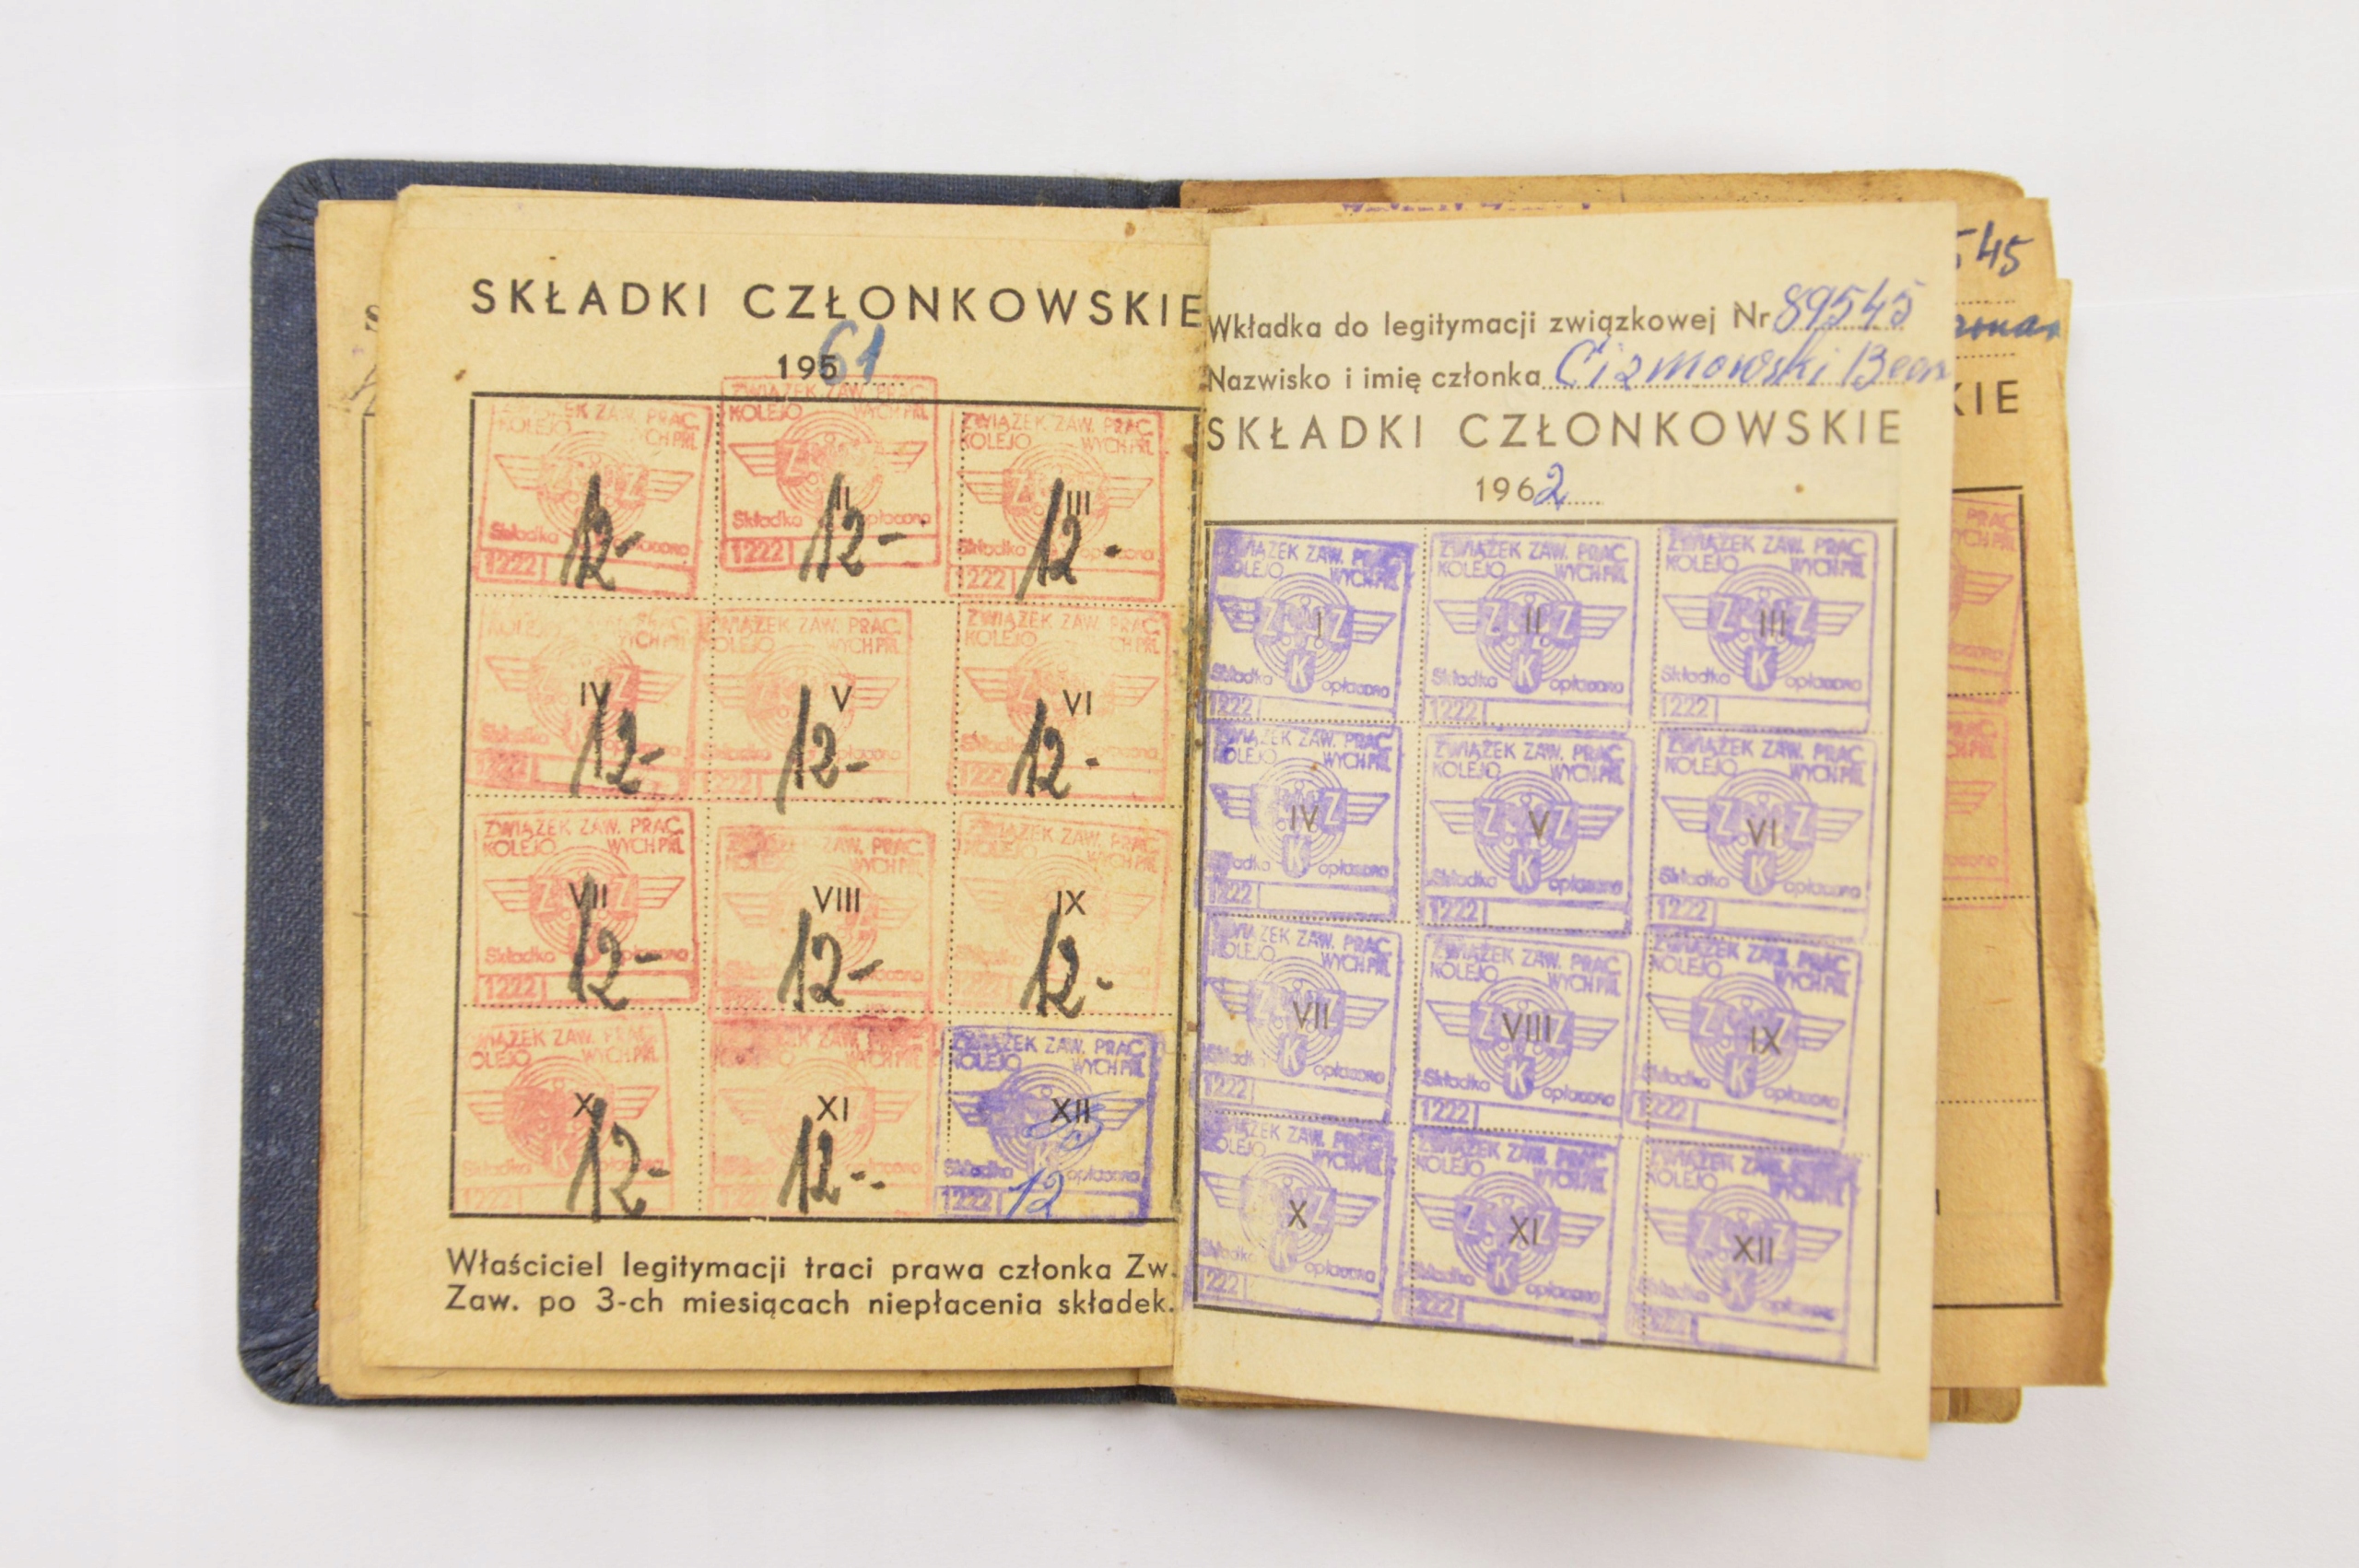 SKŁADKI CZŁONKOWSKIE
195 61
ZWIĄZEK ZAW. PRAC. KOLEJO WYCH PRL Składka opłacona 1222 12-
ZWIĄZEK ZAW. PRAC. KOLEJO WYCH PRL Z Składka opłacona 1222 II 12-
ZWIĄZEK ZAW. PRAC. KOLEJO WYCH PRL Z Z Składka opłacona 1222 III 12-
KOLEJO WYCH PRL Z Składka 1222 IV 12-
ZWIĄZEK ZAW. PRAC. KOLEJO WYCH PRL Składka opłacona 1222 V 12-
ZWIĄZEK ZAW. PRAC. KOLEJO WYCH PRL Z Z Składka opłacona 1222 VI 12-
ZWIĄZEK ZAW. PRAC. KOLEJO WYCH PRL Z Z Składka opłacona 1222 VII 12-
ZWIĄZEK ZAW. PRAC. KOLEJO WYCH PRL Składka opłacona 1222 VIII 12-
ZWIĄZEK ZAW. PRAC. KOLEJO WYCH PRL Składka opłacona 1222 IX 12-
ZWIĄZEK ZAW. PRAC. KOLEJO WYCH PRL K Składka opłacona 1222 X 12-
ZAW. PRAC. WYCH PRL Składka opłacona 1222 XI 12-
ZWIĄZEK ZAW. PRAC. KOLEJO WYCH PRL K Składka opłacona 1222 XII 12
Właściciel legitymacji traci prawa członka Zw.
Zaw. po 3-ch miesiącach niepłacenia składek.
Wkładka do legitymacji związkowej Nr 89545
Nazwisko i imię członka Cizmowski
SKŁADKI CZŁONKOWSKIE
1962
ZWIĄZEK ZAW. PRAC. KOLEJO WYCH PRL Z Z K Składka opłacona 1222 I
ZWIĄZEK ZAW. PRAC. KOLEJO WYCH PRL Z Z K Składka opłacona 1222 II
ZWIĄZEK ZAW. PRAC. KOLEJO WYCH PRL Z Z K Składka opłacona 1222 III
ZWIĄZEK ZAW. PRAC. KOLEJO WYCH PRL Z Z K Składka opłacona 1222 IV
ZWIĄZEK ZAW. PRAC. KOLEJO WYCH PRL Z Z K Składka opłacona 1222 V
ZWIĄZEK ZAW. PRAC. KOLEJO WYCH PRL Z Z K Składka opłacona 1222 VI
ZWIĄZEK ZAW. PRAC. KOLEJO WYCH PRL Z Z K Składka opłacona 1222 VII
ZWIĄZEK ZAW. PRAC. KOLEJO WYCH PRL Z Z K Składka opłacona 1222 VIII
ZWIĄZEK ZAW. PRAC. KOLEJO WYCH PRL Z Z K Składka opłacona 1222 IX
ZWIĄZEK ZAW. PRAC. KOLEJO WYCH PRL Z Z K Składka opłacona 1222 X
ZWIĄZEK ZAW. PRAC. KOLEJO WYCH PRL Z Z K Składka opłacona 1222 XI
ZWIĄZEK ZAW. PRAC. KOLEJO WYCH PRL Z Z K Składka opłacona 1222 XII
545
KIE